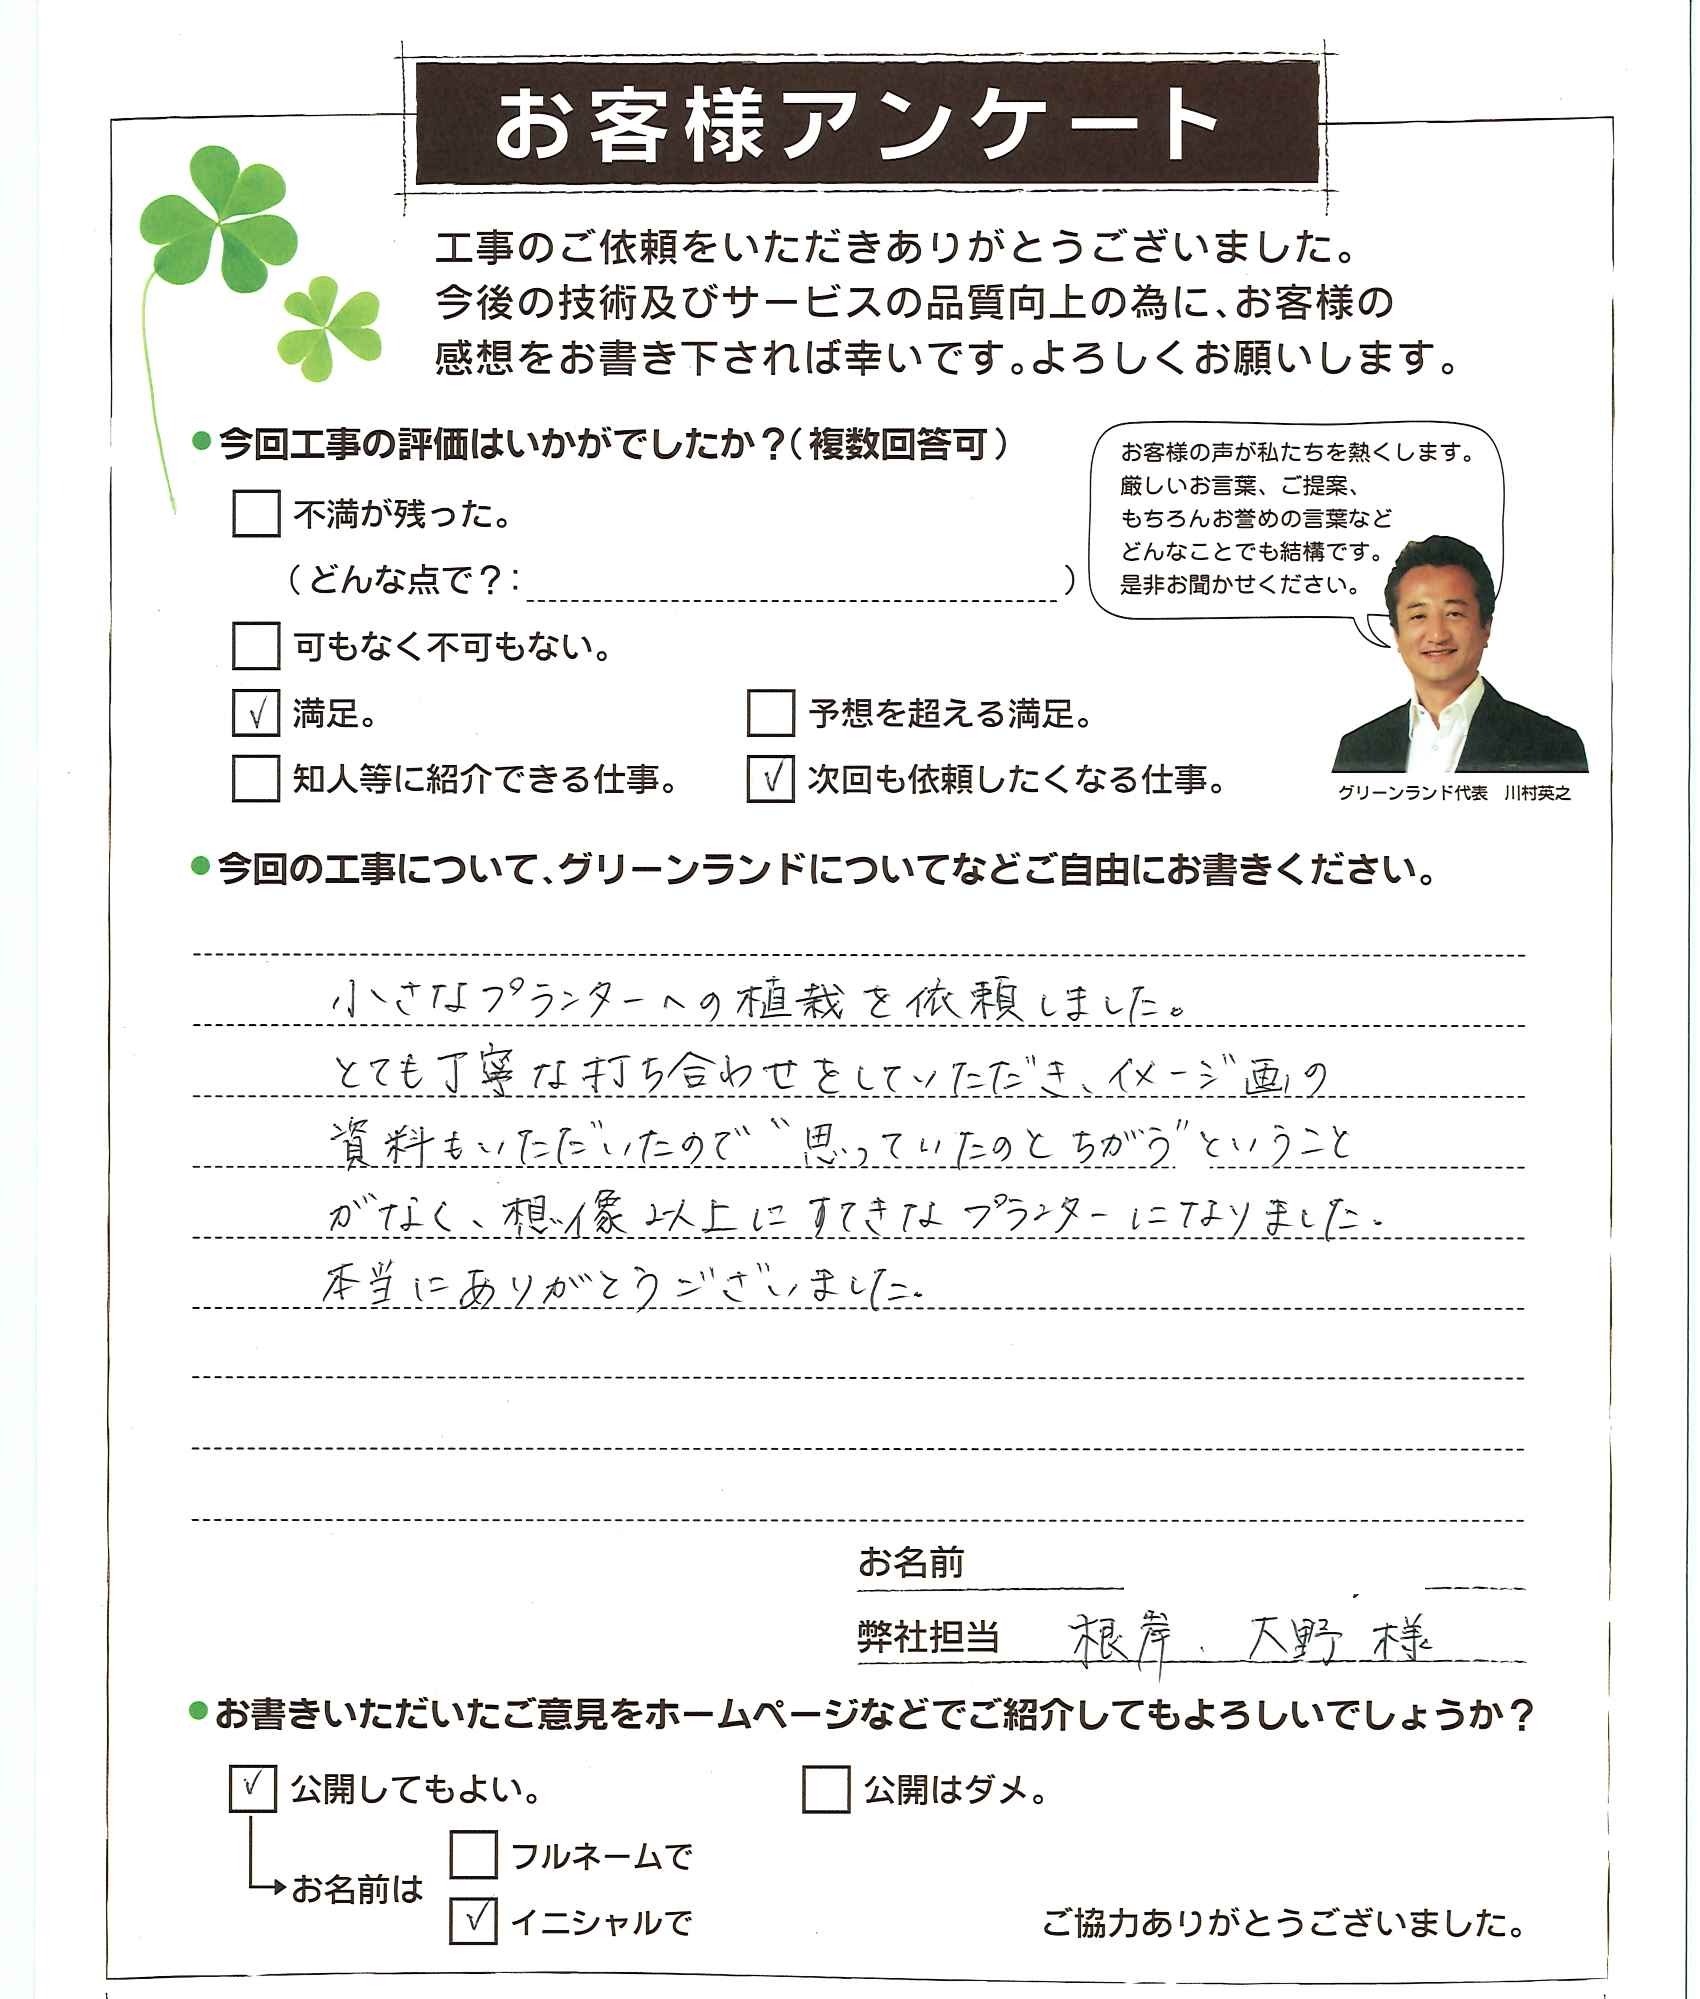 お客様アンケート
工事のご依頼をいただきありがとうございました。
今後の技術及びサービスの品質向上の為に、お客様の
感想をお書き下されば幸いです。よろしくお願いします。
●今回工事の評価はいかがでしたか？（複数回答可）
□ 不満が残った。
（どんな点で？：　　）
□ 可もなく不可もない。
☑ 満足。　□ 予想を超える満足。
□ 知人等に紹介できる仕事。　☑ 次回も依頼したくなる仕事。
お客様の声が私たちを熱くします。
厳しいお言葉、ご提案、
もちろんお誉めの言葉など
どんなことでも結構です。
是非お聞かせください。
グリーンランド代表　川村英之
●今回の工事について、グリーンランドについてなどご自由にお書きください。
小さなプランターへの植栽を依頼しました。
とても丁寧な打ち合わせをしていただき、イメージ画の
資料もいただいたので〝思っていたのとちがう〞ということ
がなく、想像以上にすてきなプランターになりました。
本当にありがとうございました。
お名前
弊社担当　根岸、大野 様
●お書きいただいたご意見をホームページなどでご紹介してもよろしいでしょうか？
☑ 公開してもよい。　□ 公開はダメ。
お名前は
□ フルネームで
☑ イニシャルで
ご協力ありがとうございました。